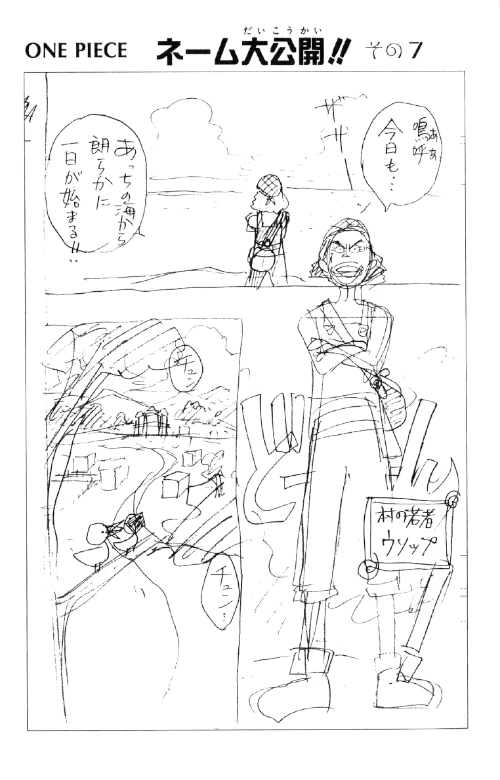 ONE PIECE
だいこうかい
ネーム大公開!! その7
ああ
嗚呼
今日も…
ザザ
あっちの海から
朗らかに
一日が始まる!!…
チュン
チュン…
村の若者
ウソップ